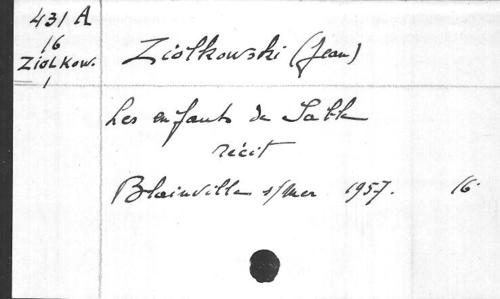 431 A
16
ZIOLKOW.
1
Ziolkowski (Jean)
Les enfants de Sable
récit
Blainville s/mer 1957. 16.